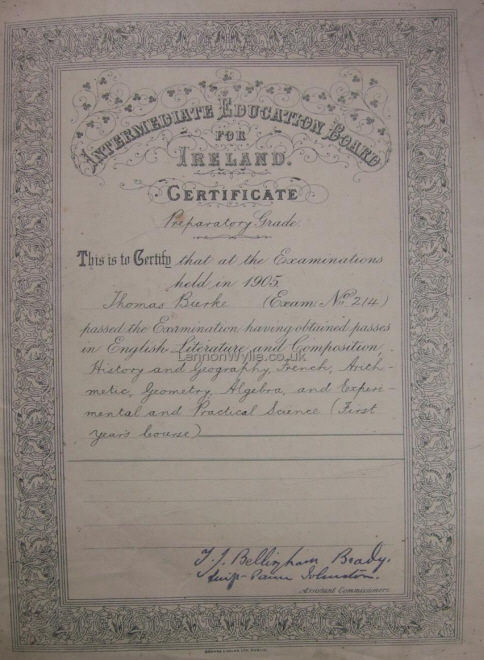 INTERMEDIATE EDUCATION BOARD
FOR
IRELAND.
CERTIFICATE
Preparatory Grade.
This is to Certify that at the Examinations
held in 1905,
Thomas Burke (Exam. No. 214)
passed the Examination having obtained passes
in English Literature and Composition,
LennonWylie.co.uk
History and Geography, French, Arith-
metic, Geometry, Algebra, and Experi-
mental and Practical Science (First
Year's Course)
T. J. Bellingham Brady.
Johnston.
Assistant Commissioners